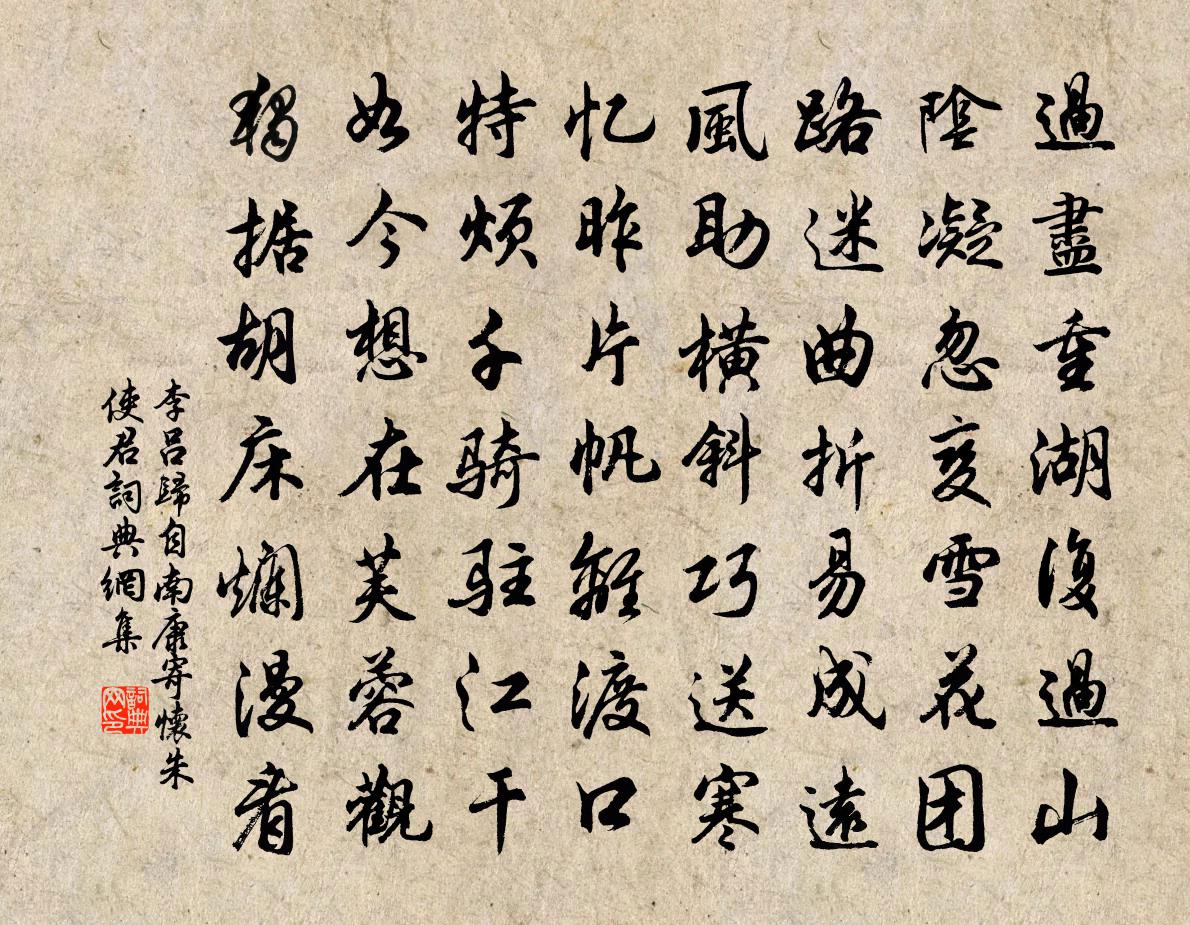 過盡重湖復過山
陰凝忽变雪花团
路迷曲折易成遠
風助橫斜巧送寒
忆昨片帆離渡口
特烦千骑驻江干
如今想在芙蓉觀
独据胡床爛漫看
李呂歸自南康寄懷朱
使君詞典網集
詞典网印